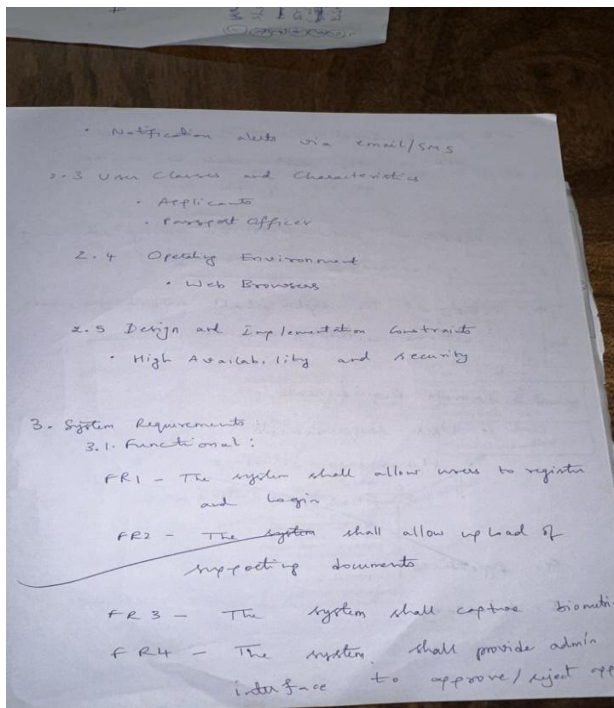 • Notification alerts via email/SMS
2.3 User Classes and Characteristics
• Applicants
• Passport Officer
2.4 Operating Environment
• Web Browsers
2.5 Design and Implementation Constraints
• High Availability and security
3. System Requirements
3.1. Functional:
FR1 - The system shall allow users to register
and Login
FR2 - The system shall allow upload of
supporting documents
FR3 - The system shall capture biometri
FR4 - The system shall provide admin
interface to approve/reject app